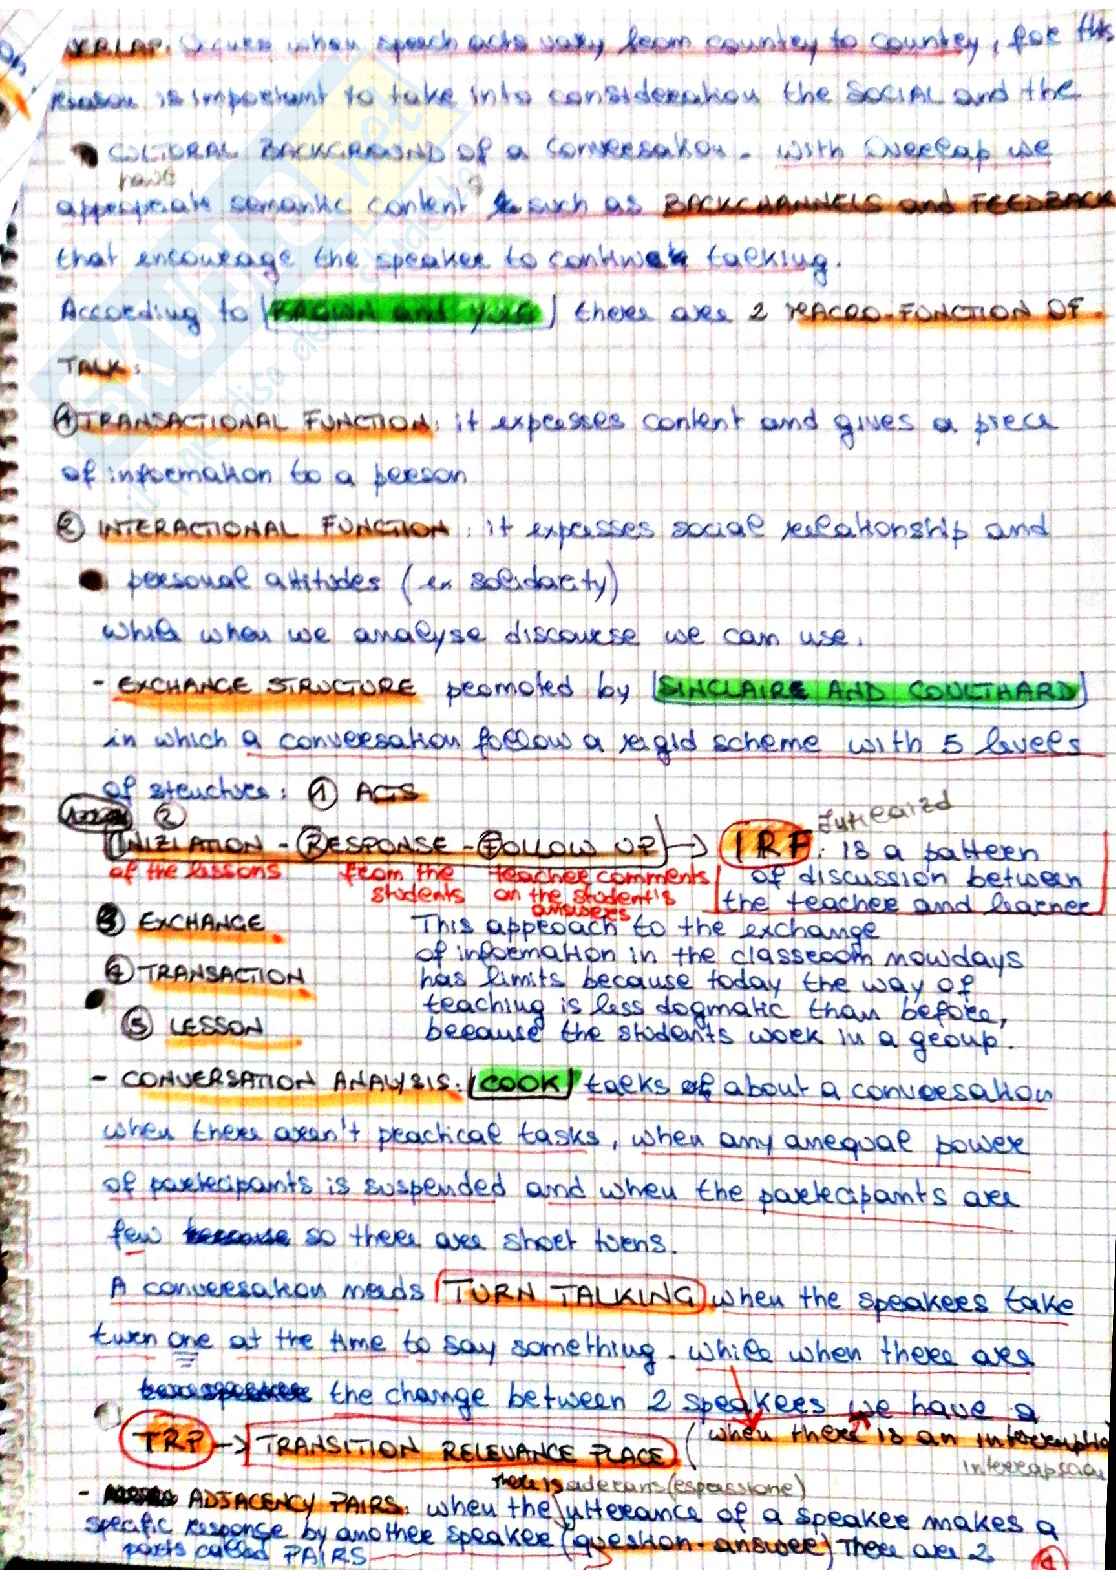 OVERLAP: Occurs when speech acts vary from country to country, for this
reason is important to take into consideration the SOCIAL and the
CULTURAL BACKGROUND of a conversation. With Overlap we
have
appropriate semantic content such as BACKCHANNELS and FEEDBACK
that encourage the speaker to continue talking.
According to BROWN and YULE there are 2 MACRO-FUNCTION OF
TALK:
① TRANSACTIONAL FUNCTION: it expresses content and gives a piece
of information to a person
② INTERACTIONAL FUNCTION: it expresses social relationship and
personal attitudes (ex solidarity)
While when we analyse discourse we can use:
- EXCHANGE STRUCTURE promoted by SINCLAIRE AND COULTHARD
in which a conversation follow a rigid scheme with 5 levels
of structure: ① ACTS
②
INIZIATION - RESPONSE - FOLLOW UP → IRF: is a pattern
of the lessons from the students teacher comments on the student's answers
of discussion between
the teacher and learner
③ EXCHANGE
This approach to the exchange
of information in the classroom nowdays
④ TRANSACTION
has limits because today the way of
teaching is less dogmatic than before,
⑤ LESSON
because the students work in a group.
- CONVERSATION ANALYSIS: COOK talks about a conversation
when there aren't practical tasks, when any anequal power
of partecipants is suspended and when the partecipants are
few so there are short turns.
A conversation needs TURN TALKING when the speakers take
turn one at the time to say something. While when there are
the change between 2 speakers we have a
TRP → TRANSITION RELEVANCE PLACE (when there is an interruption
there is
- ADJACENCY PAIRS: when the utterance of a speaker makes a
specific response by another speaker (question-answer) There are 2
parts called PAIRS